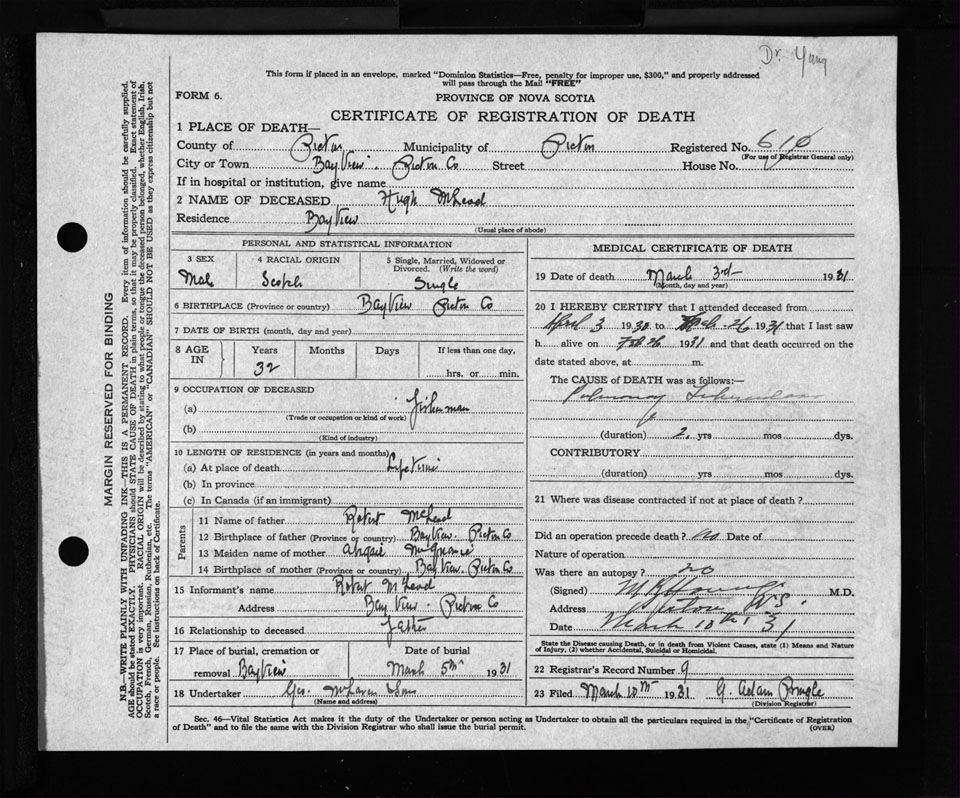 Dr. Young
This form if placed in an envelope, marked "Dominion Statistics—Free, penalty for improper use, $300," and properly addressed
will pass through the Mail "FREE"
FORM 6.
PROVINCE OF NOVA SCOTIA
CERTIFICATE OF REGISTRATION OF DEATH
1 PLACE OF DEATH—
County of Pictou Municipality of Pictou Registered No. 610
(For use of Registrar General only)
City or Town Bay View. Pictou Co Street House No.
If in hospital or institution, give name
2 NAME OF DECEASED Hugh McLeod
Residence Bay View
(Usual place of abode)
PERSONAL AND STATISTICAL INFORMATION
3 SEX 4 RACIAL ORIGIN 5 Single, Married, Widowed or
Divorced. (Write the word)
Male Scotch Single
6 BIRTHPLACE (Province or country) Bay View Pictou Co
7 DATE OF BIRTH (month, day and year)
8 AGE IN Years Months Days If less than one day,
32 hrs. or min.
9 OCCUPATION OF DECEASED
(a) Fisherman
(Trade or occupation or kind of work)
(b)
(Kind of industry)
10 LENGTH OF RESIDENCE (in years and months)
(a) At place of death Life Time
(b) In province
(c) In Canada (if an immigrant)
Parents
11 Name of father Robert McLeod
12 Birthplace of father (Province or country) Bay View. Pictou Co
13 Maiden name of mother Abigail
14 Birthplace of mother (Province or country) Bay View. Pictou Co
15 Informant's name Robert McLeod
Address Bay View - Pictou Co
16 Relationship to deceased Father
17 Place of burial, cremation or Date of burial
removal Bay View March 5th 1931
18 Undertaker Geo. McLaren Sons
(Name and address)
MEDICAL CERTIFICATE OF DEATH
19 Date of death March 3rd 1931
(Month, day and year)
20 I HEREBY CERTIFY that I attended deceased from
April 3 1930 to Feb. 26 1931 that I last saw
h alive on Feb 26 1931 and that death occurred on the
date stated above, at m.
The CAUSE of DEATH was as follows:—
Pulmonary Tuberculosis
(duration) 2 yrs mos dys.
CONTRIBUTORY
(duration) yrs mos dys.
21 Where was disease contracted if not at place of death?
Did an operation precede death? no Date of
Nature of operation
Was there an autopsy? no
(Signed) Young M.D.
Address Pictou N.S.
Date March 10th 31
State the Disease causing Death, or in death from Violent Causes, state (1) Means and Nature
of Injury, (2) whether Accidental, Suicidal or Homicidal.
22 Registrar's Record Number 9
23 Filed March 10th 1931 G. Adam Pringle
(Division Registrar)
Sec. 46—Vital Statistics Act makes it the duty of the Undertaker or person acting as Undertaker to obtain all the particulars required in the "Certificate of Registration
of Death" and to file the same with the Division Registrar who shall issue the burial permit. (OVER)
MARGIN RESERVED FOR BINDING
N.B.—WRITE PLAINLY WITH UNFADING INK—THIS IS A PERMANENT RECORD. Every item of information should be carefully supplied.
AGE should be stated EXACTLY. PHYSICIANS should STATE CAUSE OF DEATH in plain terms, so that it may be properly classified. Exact statement of
OCCUPATION is very important. RACIAL ORIGIN will be described by stating to what people or tongue the deceased person belonged, whether English, Irish,
Scotch, French, German, Russian, Ruthenian, etc. The terms "AMERICAN" or "CANADIAN" SHOULD NOT BE USED as they express citizenship but not
a race or people. See instructions on back of Certificate.